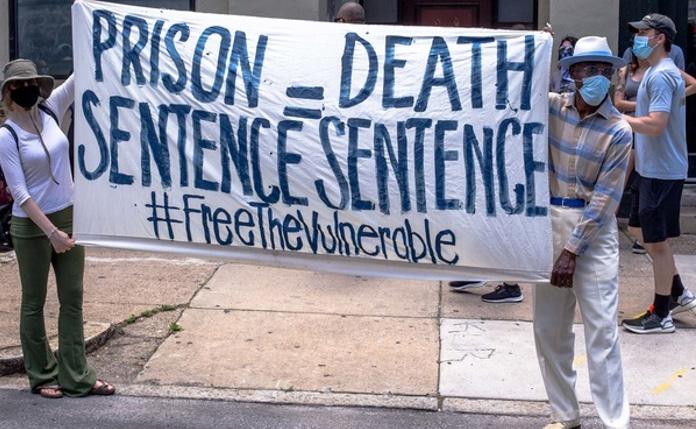 PRISON = DEATH
SENTENCE SENTENCE
#FreeTheVulnerable